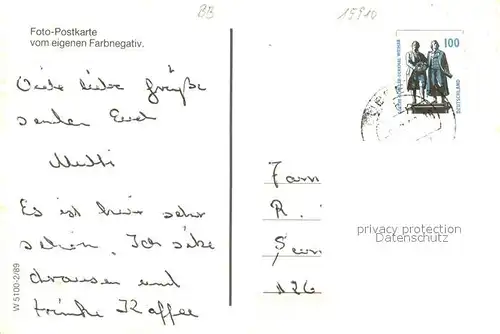 BB
15910
Foto-Postkarte
vom eigenen Farbnegativ.
100
DEUTSCHLAND
Viele liebe Grüße
senden Euch
Mutti
Es ist hier sehr
schön. Ich sitze
draussen und
trinke Kaffee
Fam
R.
privacy protection
Datenschutz
126
W 5100-2/89